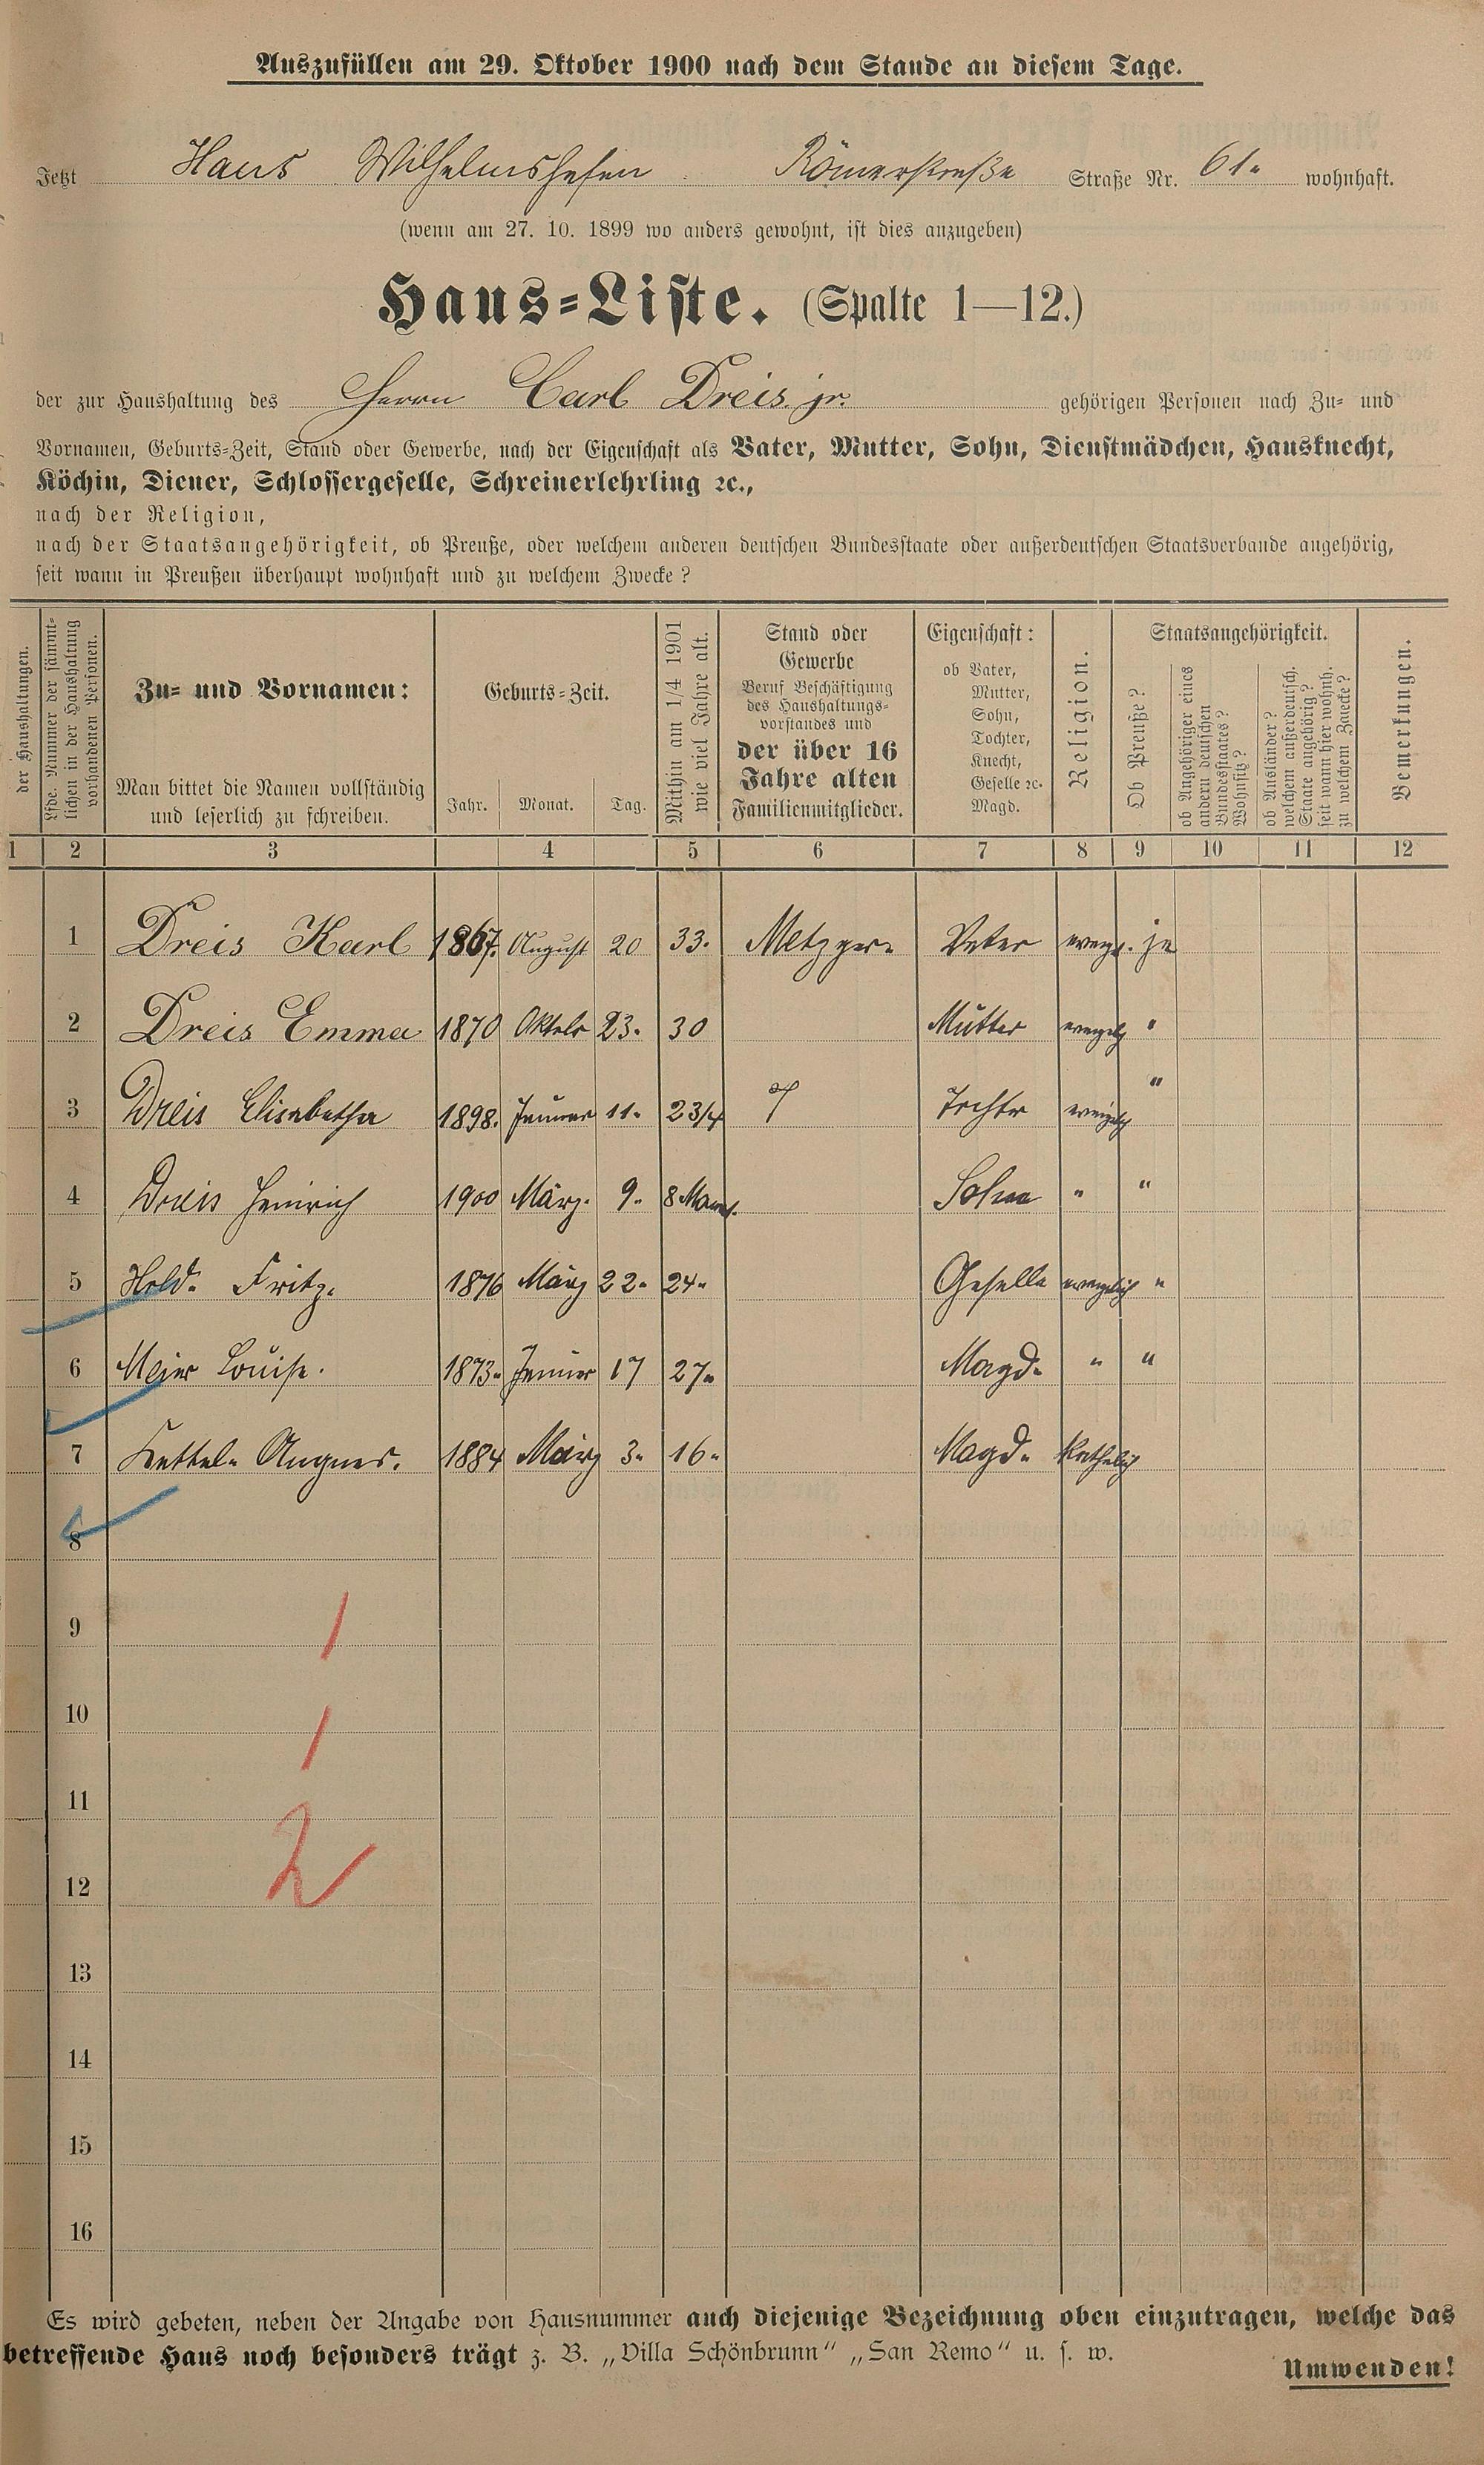 Auszufüllen am 29. Oktober 1900 nach dem Stande an diesem Tage.
Jetzt Haus Wilhelmshafen Römerstraße Straße Nr. 61. wohnhaft.
(wenn am 27. 10. 1899 wo anders gewohnt, ist dies anzugeben)
Haus-Liste. (Spalte 1—12.)
der zur Haushaltung des Herrn Carl Dreis jr. gehörigen Personen nach Zu- und
Vornamen, Geburts-Zeit, Stand oder Gewerbe, nach der Eigenschaft als Vater, Mutter, Sohn, Dienstmädchen, Hausknecht,
Köchin, Diener, Schlossergeselle, Schreinerlehrling ꝛc.,
nach der Religion,
nach der Staatsangehörigkeit, ob Preuße, oder welchem anderen deutschen Bundesstaate oder außerdeutschen Staatsverbande angehörig,
seit wann in Preußen überhaupt wohnhaft und zu welchem Zwecke?
der Haushaltungen.
Lfde. Nummer der sämmt-
lichen in der Haushaltung
vorhandenen Personen.
Zu- und Vornamen:
Man bittet die Namen vollständig
und leserlich zu schreiben.
Geburts-Zeit.
Jahr. Monat. Tag.
Mithin am 1/4 1901
wie viel Jahre alt.
Stand oder
Gewerbe
Beruf Beschäftigung
des Haushaltungs-
vorstandes und
der über 16
Jahre alten
Familienmitglieder.
Eigenschaft:
ob Vater,
Mutter,
Sohn,
Tochter,
Knecht,
Geselle ꝛc.
Magd.
Religion.
Staatsangehörigkeit.
Ob Preuße?
ob Angehöriger eines
andern deutschen
Bundesstaates?
Wohnsitz?
ob Ausländer?
welchem außerdeutsch.
Staate angehörig?
seit wann hier wohnh.
zu welchem Zwecke?
Bemerkungen.
1 2 3 4 5 6 7 8 9 10 11 12
1 Dreis Karl 1867. August 20 33. Metzger. Vater evangl. ja
2 Dreis Emma 1870 Oktobr 23. 30 Mutter evanglg "
3 Dreis Elisabetha 1898. Januar 11. 2 3/4 Tochter "
4 Dreis Heinrich 1900 März. 9. 8 Monat. Sohn " "
5 Hold. Fritz. 1876 März 22. 24. Geselle evanglich "
6 Meier Louise. 1873. Januar 17 27. Magd. " "
7 Angnes. 1884 März 3. 16. Magd. Katholich
8
9 1
10 1
11
12 2
13
14
15
16
Es wird gebeten, neben der Angabe von Hausnummer auch diejenige Bezeichnung oben einzutragen, welche das
betreffende Haus noch besonders trägt z. B. „Villa Schönbrunn“ „San Remo“ u. s. w.
Umwenden!